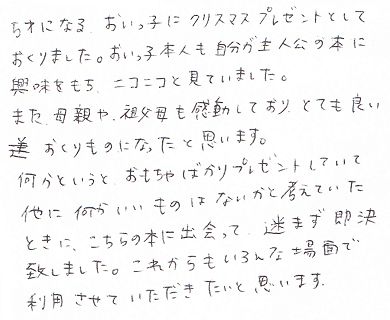 5才になる、おいっ子にクリスマスプレゼントとして
おくりました。おいっ子本人も自分が主人公の本に
興味をもち、ニコニコと見ていました。
また、母親や、祖父母も感動しており、とても良い
おくりものになったと思います。
何かというと、おもちゃばかりプレゼントしていて
他に何かいいものはないかと考えていた
ときに、こちらの本に出会って、迷まず即決
致しました。これからもいろんな場面で
利用させていただきたいと思います。